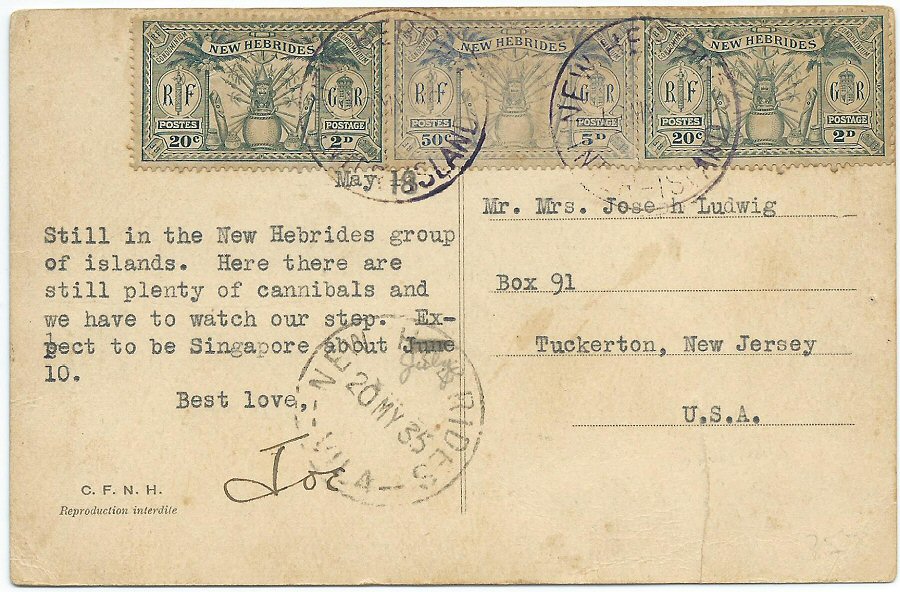 NEW HEBRIDES
CONDOMINIUM
RF
GR
POSTES
POSTAGE
20c
2D
NEW HEBRIDES
RF
GR
50c
5D
NEW HEBRIDES
RF
GR
POSTES
POSTAGE
20c
2D
ISLAND
NEW HE
ISLAND
May 18
Still in the New Hebrides group
of islands. Here there are
still plenty of cannibals and
we have to watch our step. Ex-
pect to be Singapore about June
July
10.
Best love,
Joe
NEW HEBRIDES
20 MY 35
VILA
C. F. N. H.
Reproduction interdite
Mr. Mrs. Joseph Ludwig
Box 91
Tuckerton, New Jersey
U.S.A.